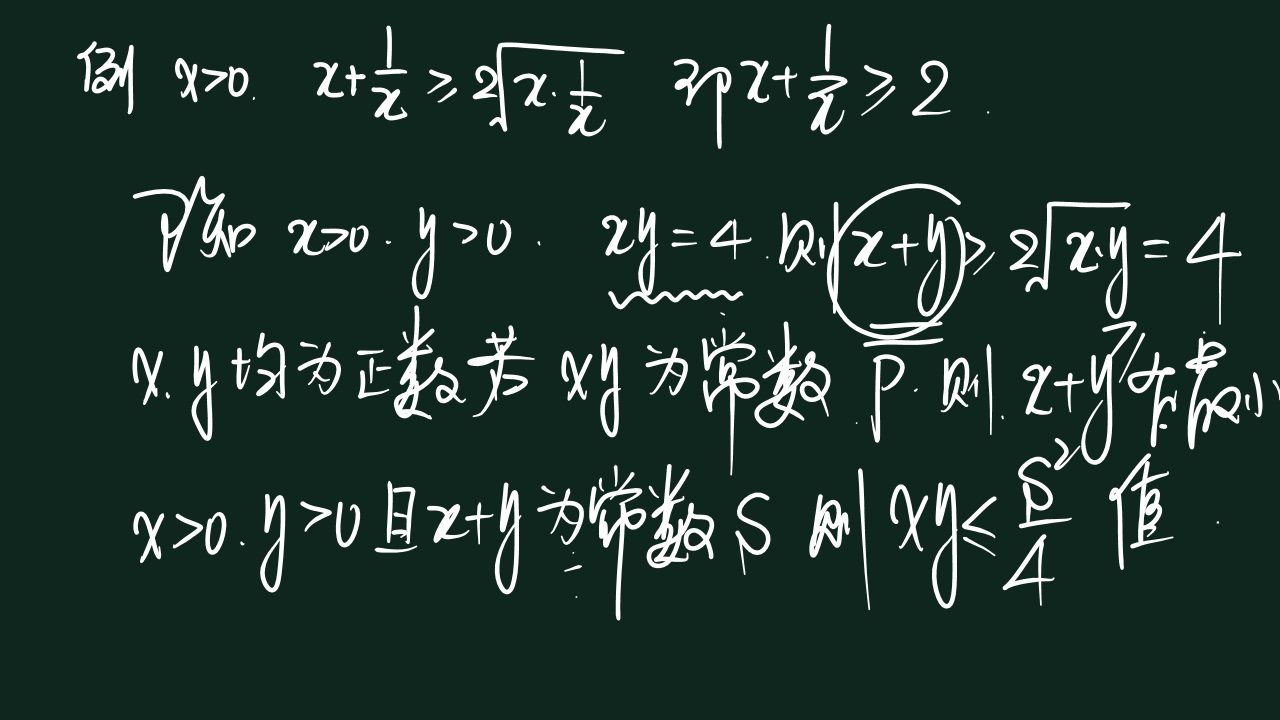 例 x>0. x+1/x ≥ 2√(x·1/x) 即 x+1/x ≥ 2.
可知 x>0. y>0. xy=4. 则 x+y ≥ 2√(x·y) = 4
x. y 均为正数 若 xy 为常数 P. 则. x+y 有最小
x>0. y>0 且 x+y 为常数 S 则 xy ≤ S²/4 值.